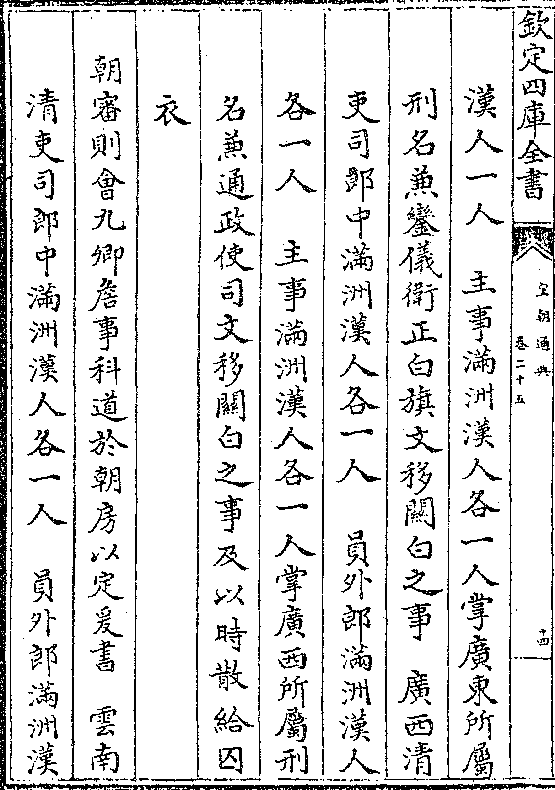 欽定四庫全書
皇朝通典
卷二十五
十四
漢人一人　主事滿洲漢人各一人掌廣東所屬
刑名兼鑾儀衛正白旗文移關白之事　廣西清
吏司郎中滿洲漢人各一人　員外郎滿洲漢人
各一人　主事滿洲漢人各一人掌廣西所屬刑
名兼通政使司文移關白之事及以時散給囚
衣
朝審則會九卿詹事科道於朝房以定爰書　雲南
清吏司郎中滿洲漢人各一人　員外郎滿洲漢